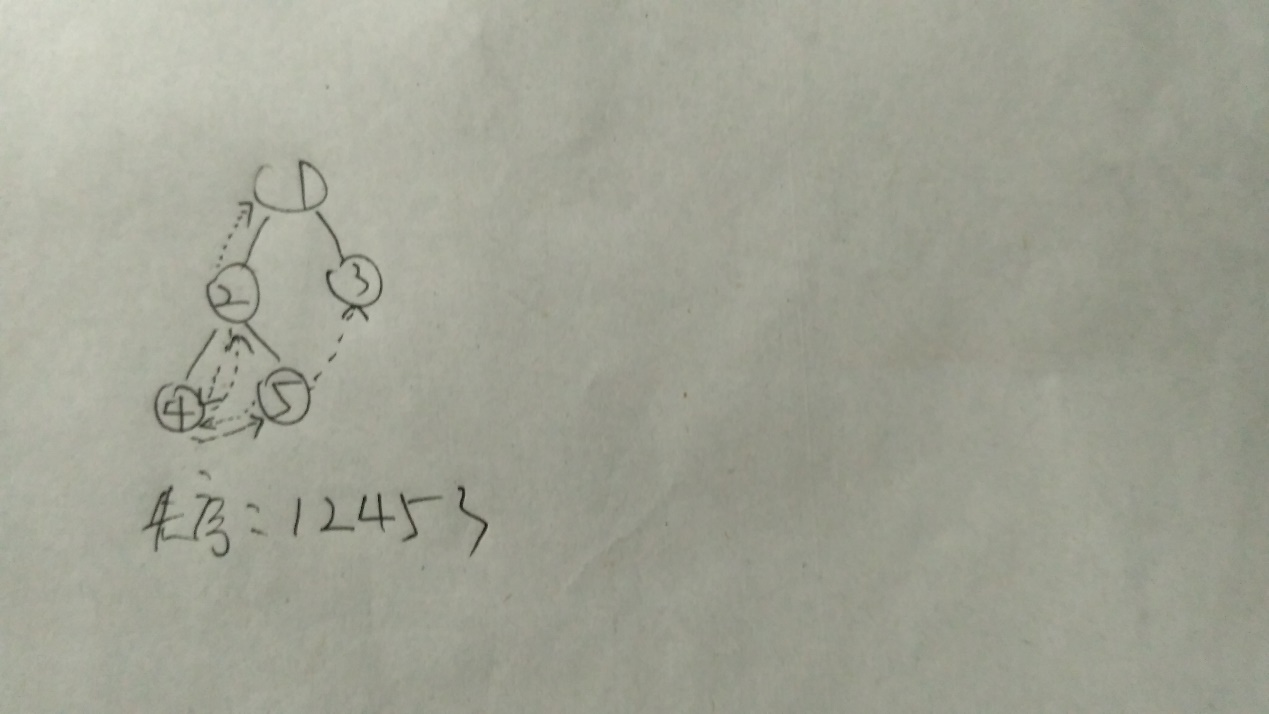 1
2 3
4 5
先序：12453